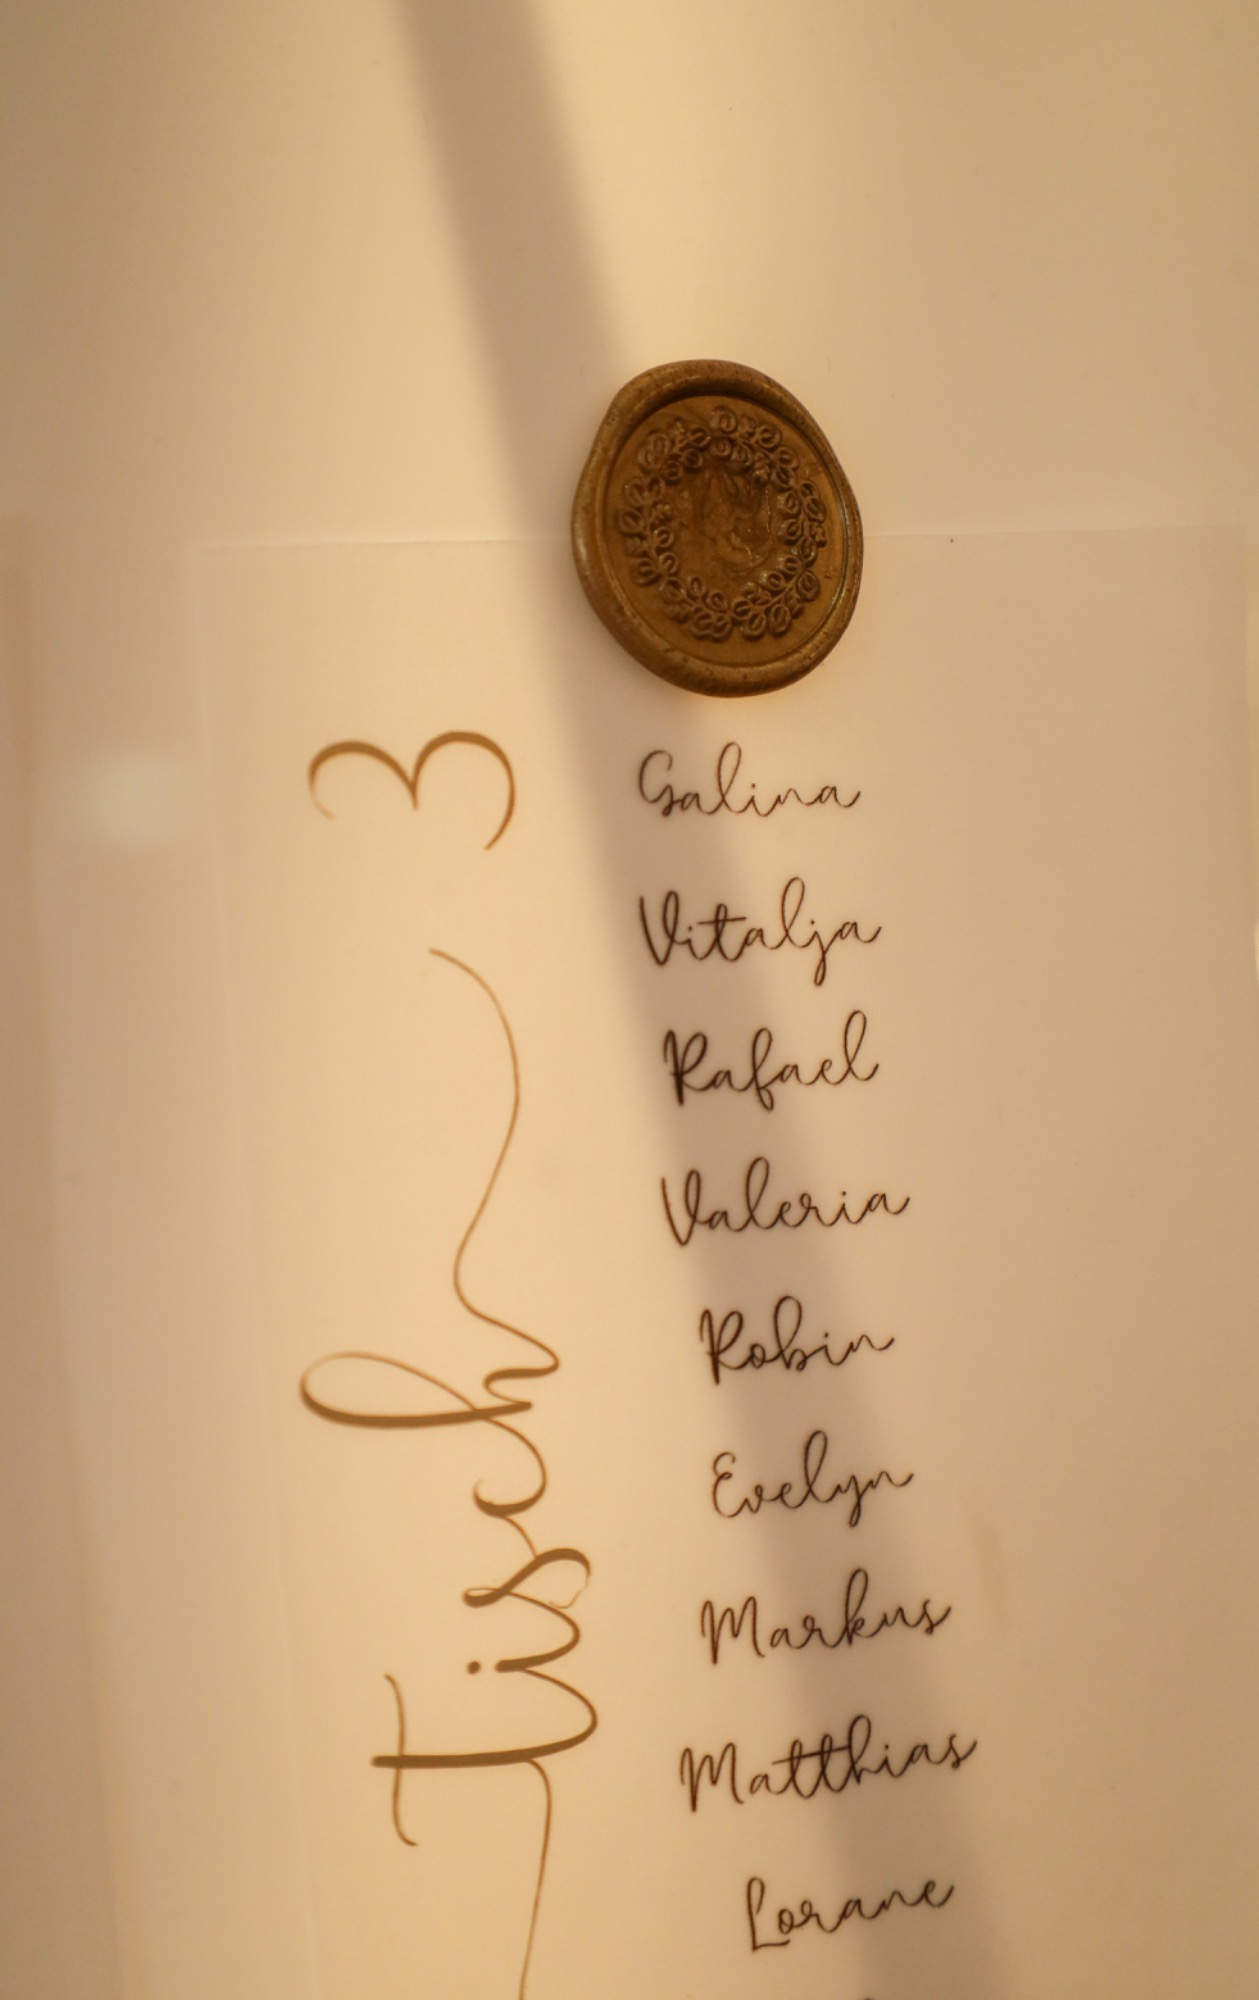 Tisch 3
Galina
Vitalja
Rafael
Valeria
Robin
Evelyn
Markus
Matthias
Lorane